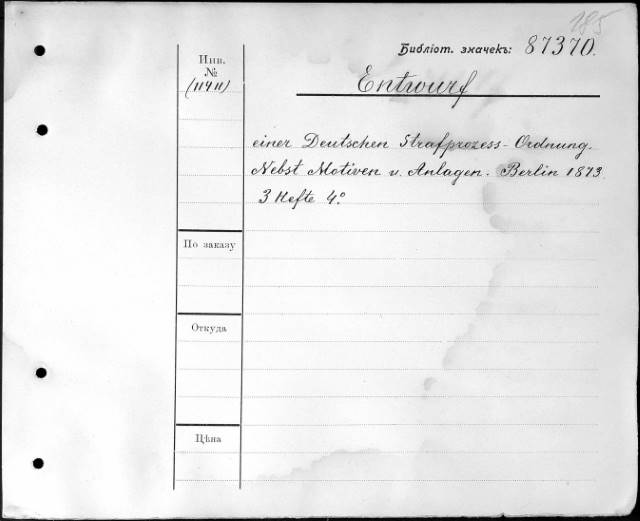 185
Библіот. значекъ: 87370.
Инв.
№
(11411)
Entwurf
einer Deutschen Strafprozess-Ordnung.
Nebst Motiven u. Anlagen. Berlin 1873.
3 Hefte 4°.
По заказу
Откуда
Цѣна